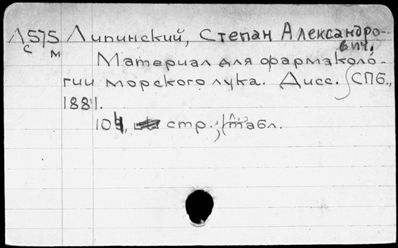 Л575 Липинский, Степан Александро-
с м вич.
Материал для фармаколо-
гии морского лука. Дисс. СПб.,
1881.
104, стр., табл.